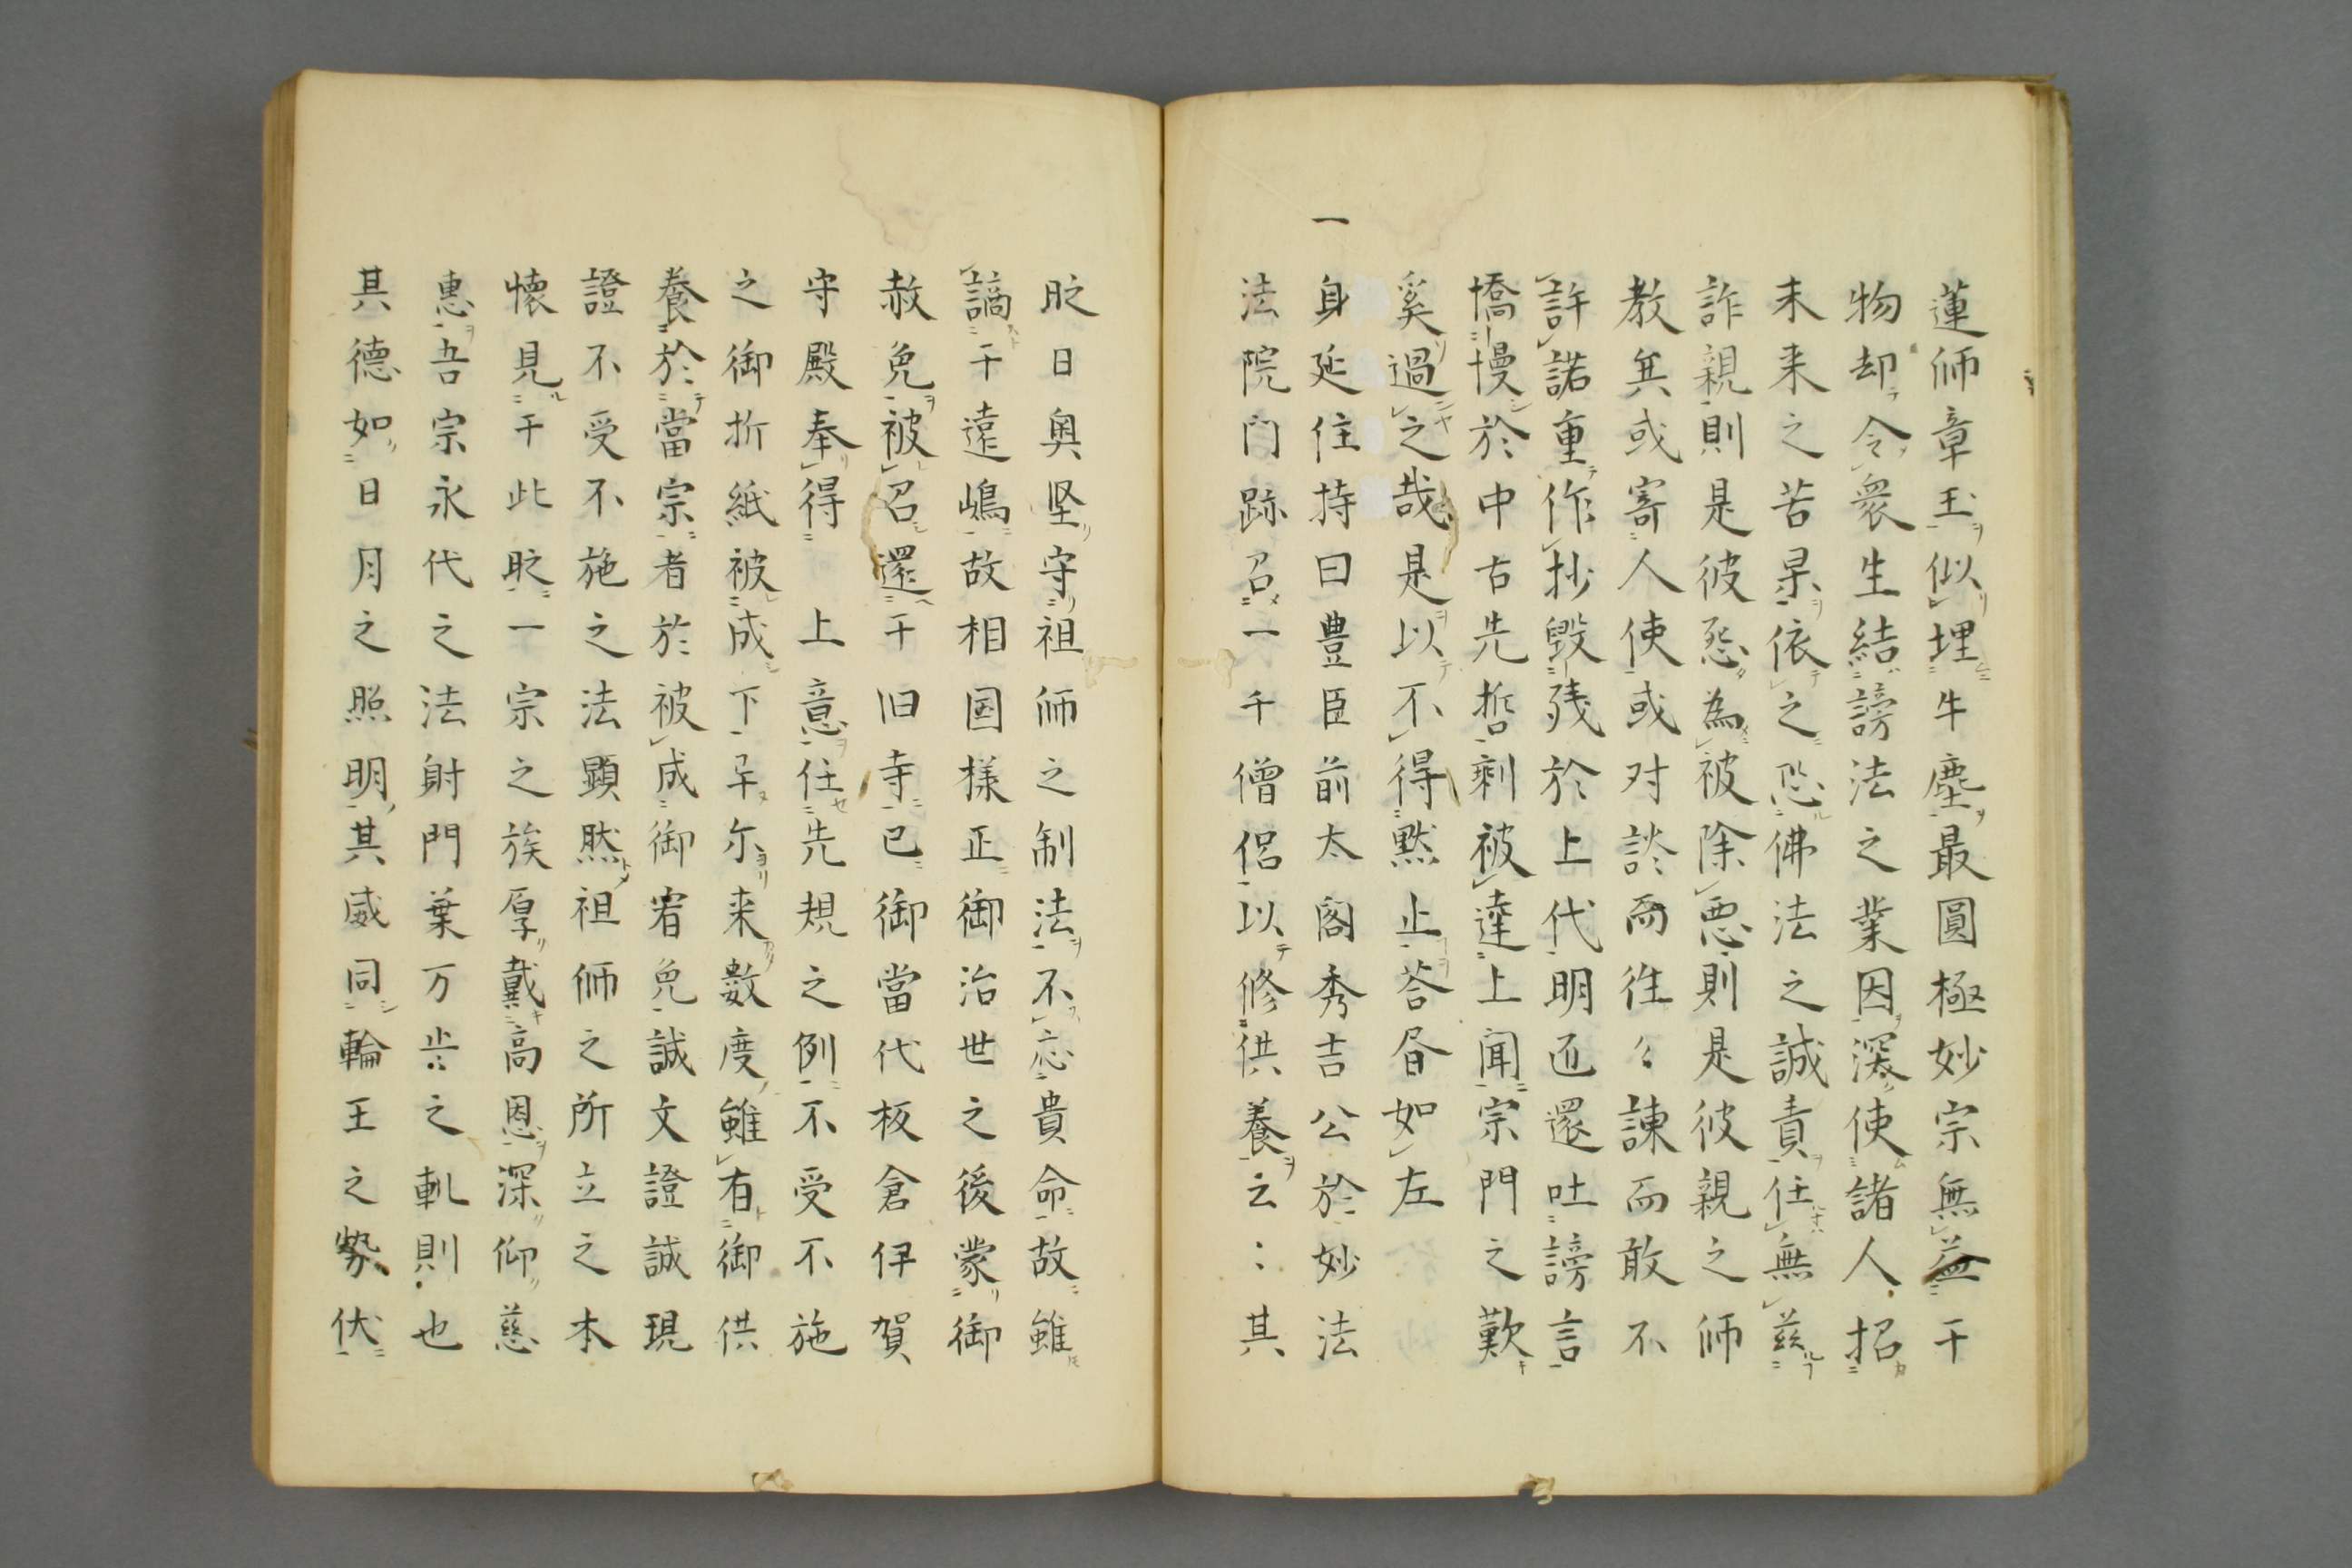 蓮師章玉似埋牛塵最圓極妙宗無益于
物却令衆生結謗法之業因深使諸人招
未来之苦果依之恐佛法之誠責任無慈
詐親則是彼怨為被除悪則是彼親之師
教矣或寄人使或对談而徃々諌而敢不
許諾重作抄毀残於上代明迊還吐謗言
憍慢於中古先哲剰被達上聞宗門之歎
奚過之哉是以不得黙止荅昏如左
一身延住持曰豊臣前太閤秀吉公於妙法
法院门跡召一千僧侶以修供養云〻其
貶日奥堅守祖師之制法不応貴命故雖
謫于遠嶋故相国様正御治世之後蒙御
赦免被召還于旧寺已御當代板倉伊賀
守殿奉得 上意任先規之例不受不施
之御折紙被成下早尓来數度雖有御供
養於當宗者於被成御宥免誠文證誠現
證不受不施之法顕然祖师之所立之本
懐見于此貶一宗之族厚戴高恩深仰慈
惠吾宗永代之法財門葉万歩之軌則也
其德如日月之照明其威同輪王之勢伏